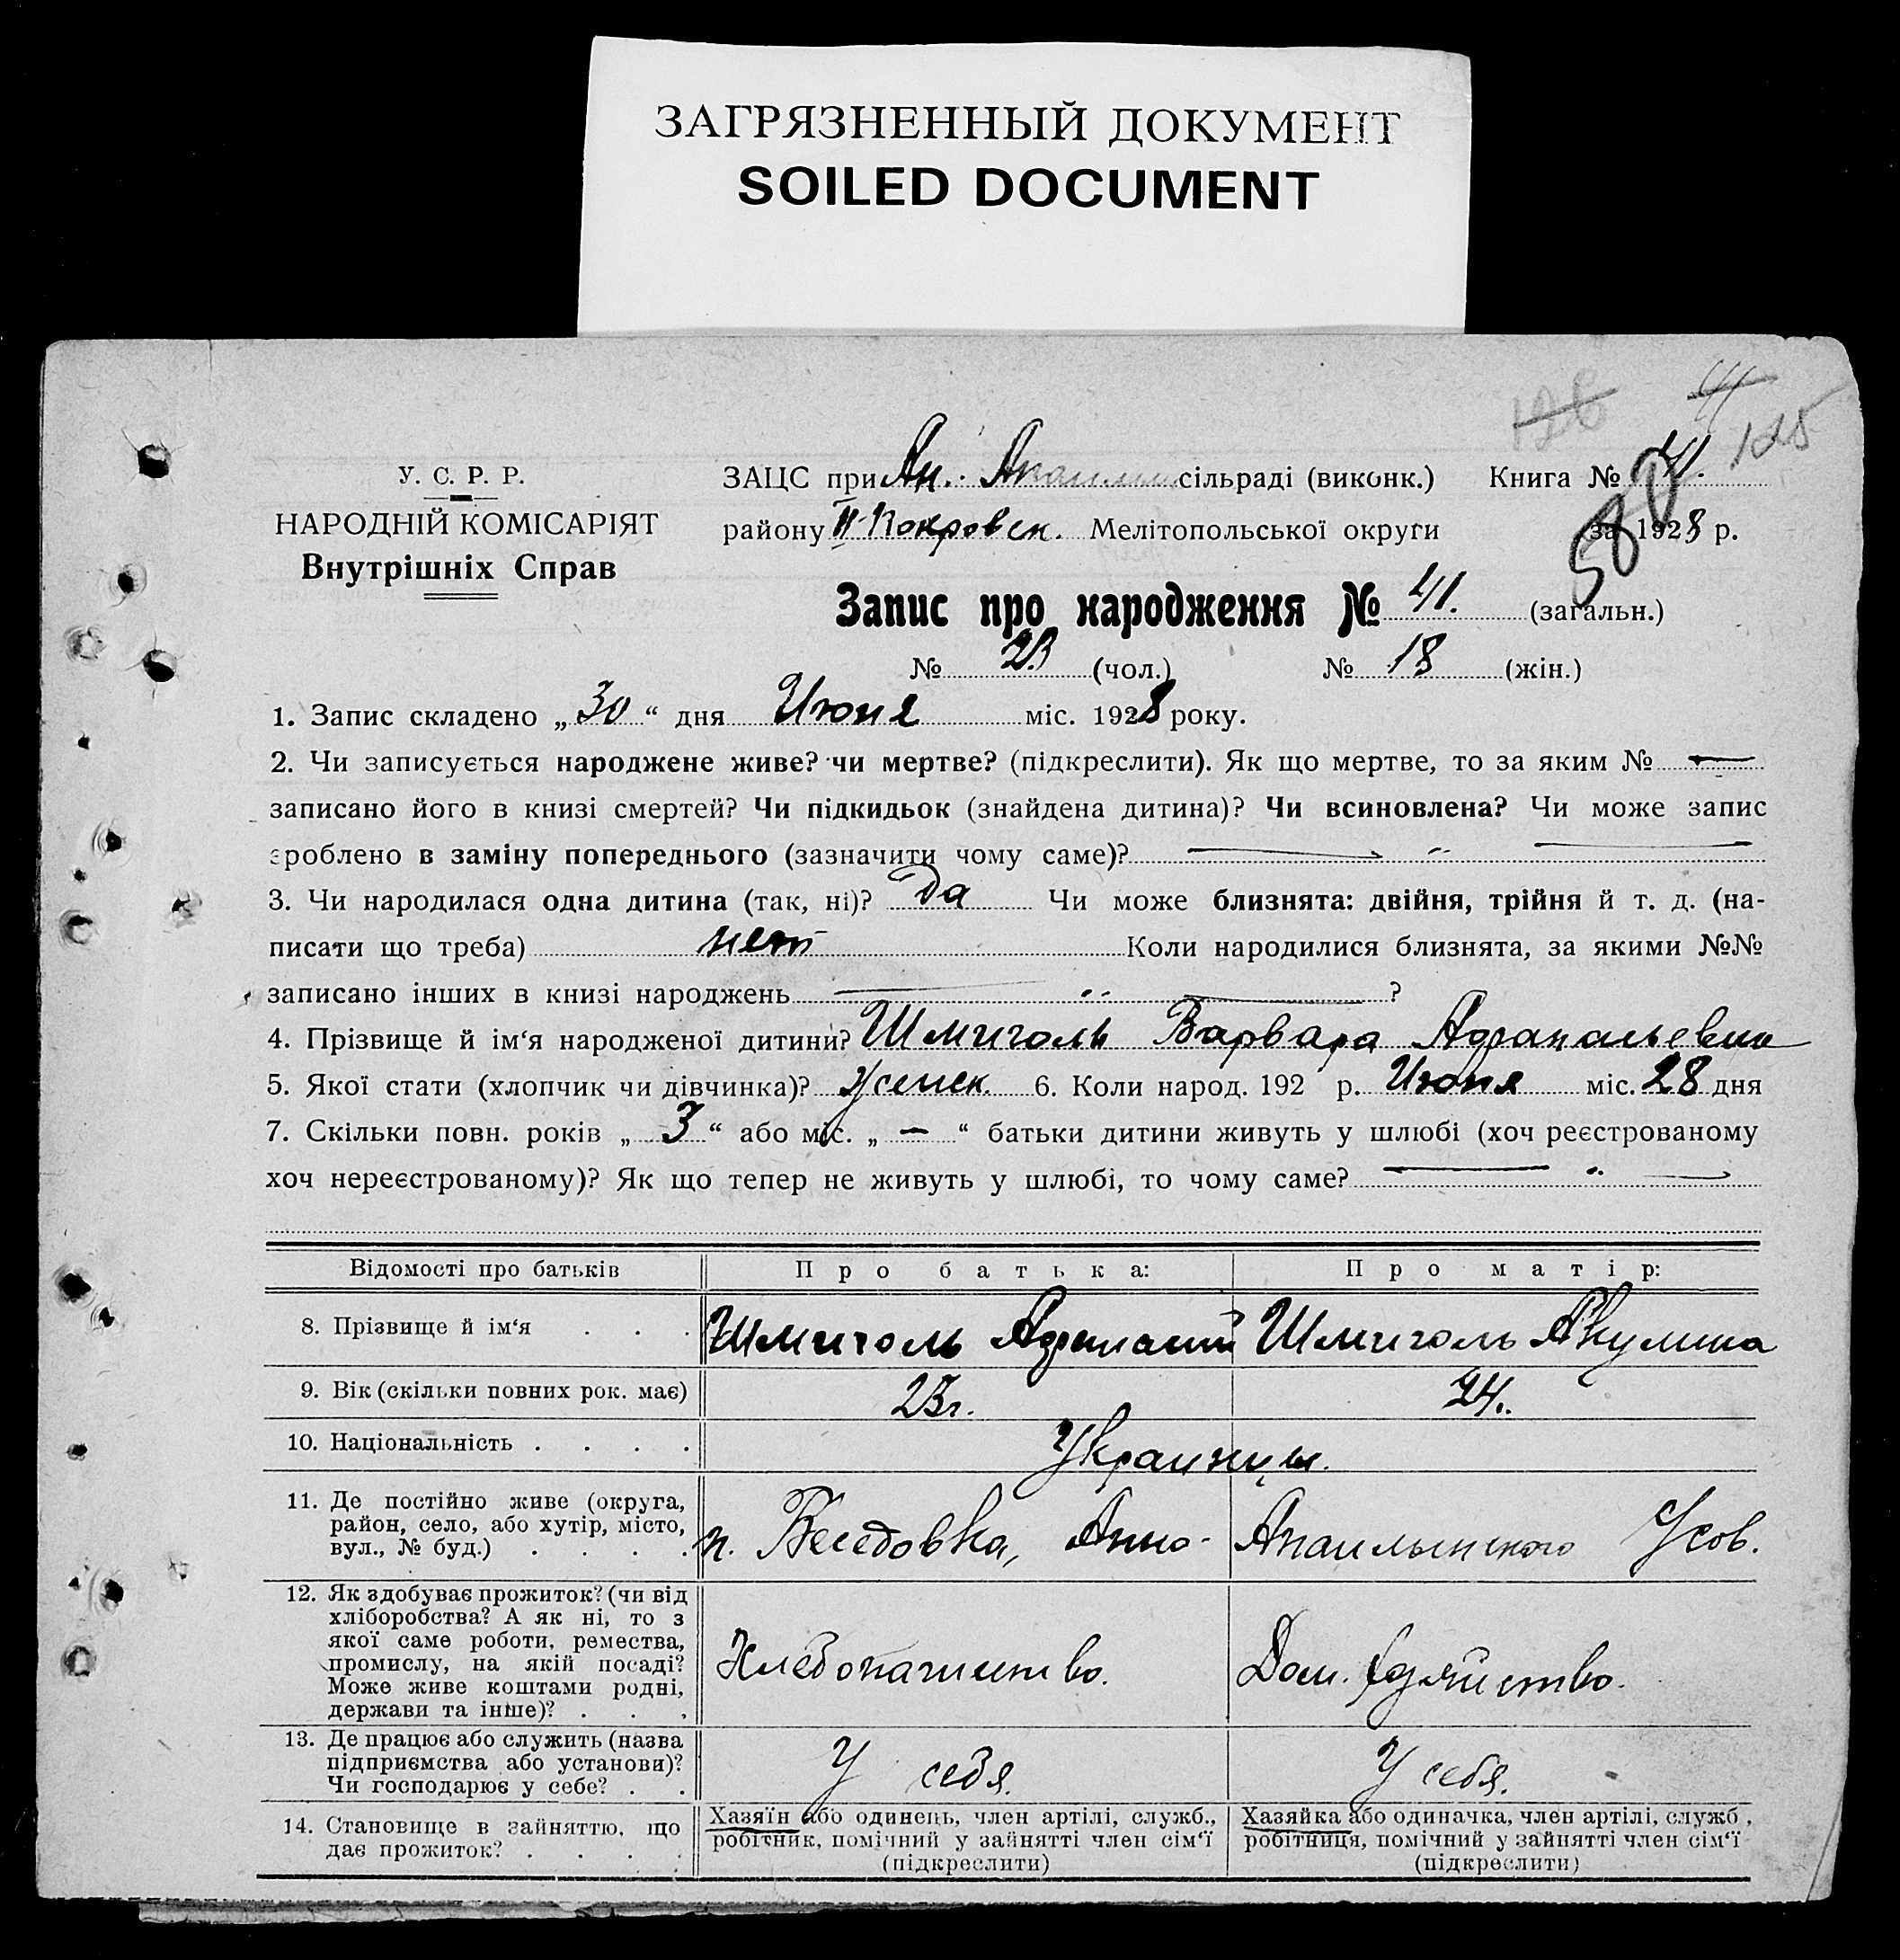 ЗАГРЯЗНЕННЫЙ ДОКУМЕНТ
SOILED DOCUMENT
126 41 125
У. С. Р. Р.
НАРОДНІЙ КОМІСАРІЯТ
Внутрішніх Справ
ЗАЦС при Ан. сільраді (виконк.) Книга № 41.
району II-Покровск. Мелітопольської округи за 1928 р.
Запис про народження № 41. (загальн.)
№ 23 (чол.) № 18 (жін.)
1. Запис складено „ 30 “ дня Июня міс. 1928 року.
2. Чи записується народжене живе? чи мертве? (підкреслити). Як що мертве, то за яким № —
записано його в книзі смертей? Чи підкидьок (знайдена дитина)? Чи всиновлена? Чи може запис
зроблено в заміну попереднього (зазначити чому саме)? — „ —
3. Чи народилася одна дитина (так, ні)? Да Чи може близнята: двійня, трійня й т. д. (на-
писати що треба) нет Коли народилися близнята, за якими №№
записано інших в книзі народжень — „ — ?
4. Прізвище й ім‘я народженої дитини? Шмиголь Варвара
5. Якої стати (хлопчик чи дівчинка)? женск. 6. Коли народ. 192 р. Июня міс. 28 дня
7. Скільки повн. років „ 3 “ або міс. „ — “ батьки дитини живуть у шлюбі (хоч реєстрованому
хоч нереєстрованому)? Як що тепер не живуть у шлюбі, то чому саме? — „ —
Відомості про батьків Про батька: Про матір:
8. Прізвище й ім‘я . . . Шмиголь Шмиголь Акулина
9. Вік (скільки повних рок. має) 23 г. 24.
10. Національність . . . . Украинцы.
11. Де постійно живе (округа,
район, село, або хутір, місто,
вул., № буд.) . . . .
п. Беседовка, Анно- Апаилынского Усов.
12. Як здобуває прожиток? (чи від
хліборобства? А як ні, то з
якої саме роботи, ремества,
промислу, на якій посаді?
Може живе коштами родні,
держави та інше)? . . .
Хлебопашество. Дом. хозяйство.
13. Де працює або служить (назва
підприємства або установи)?
Чи господарює у себе? . .
У себя. У себя.
14. Становище в зайняттю, що
дає прожиток? . . . .
Хазяїн або одинець, член артілі, служб.,
робітник, помічний у зайнятті член сім‘ї
(підкреслити)
Хазяйка або одиначка, член артілі, служб,
робітниця, помічний у зайнятті член сім‘ї
(підкреслити)